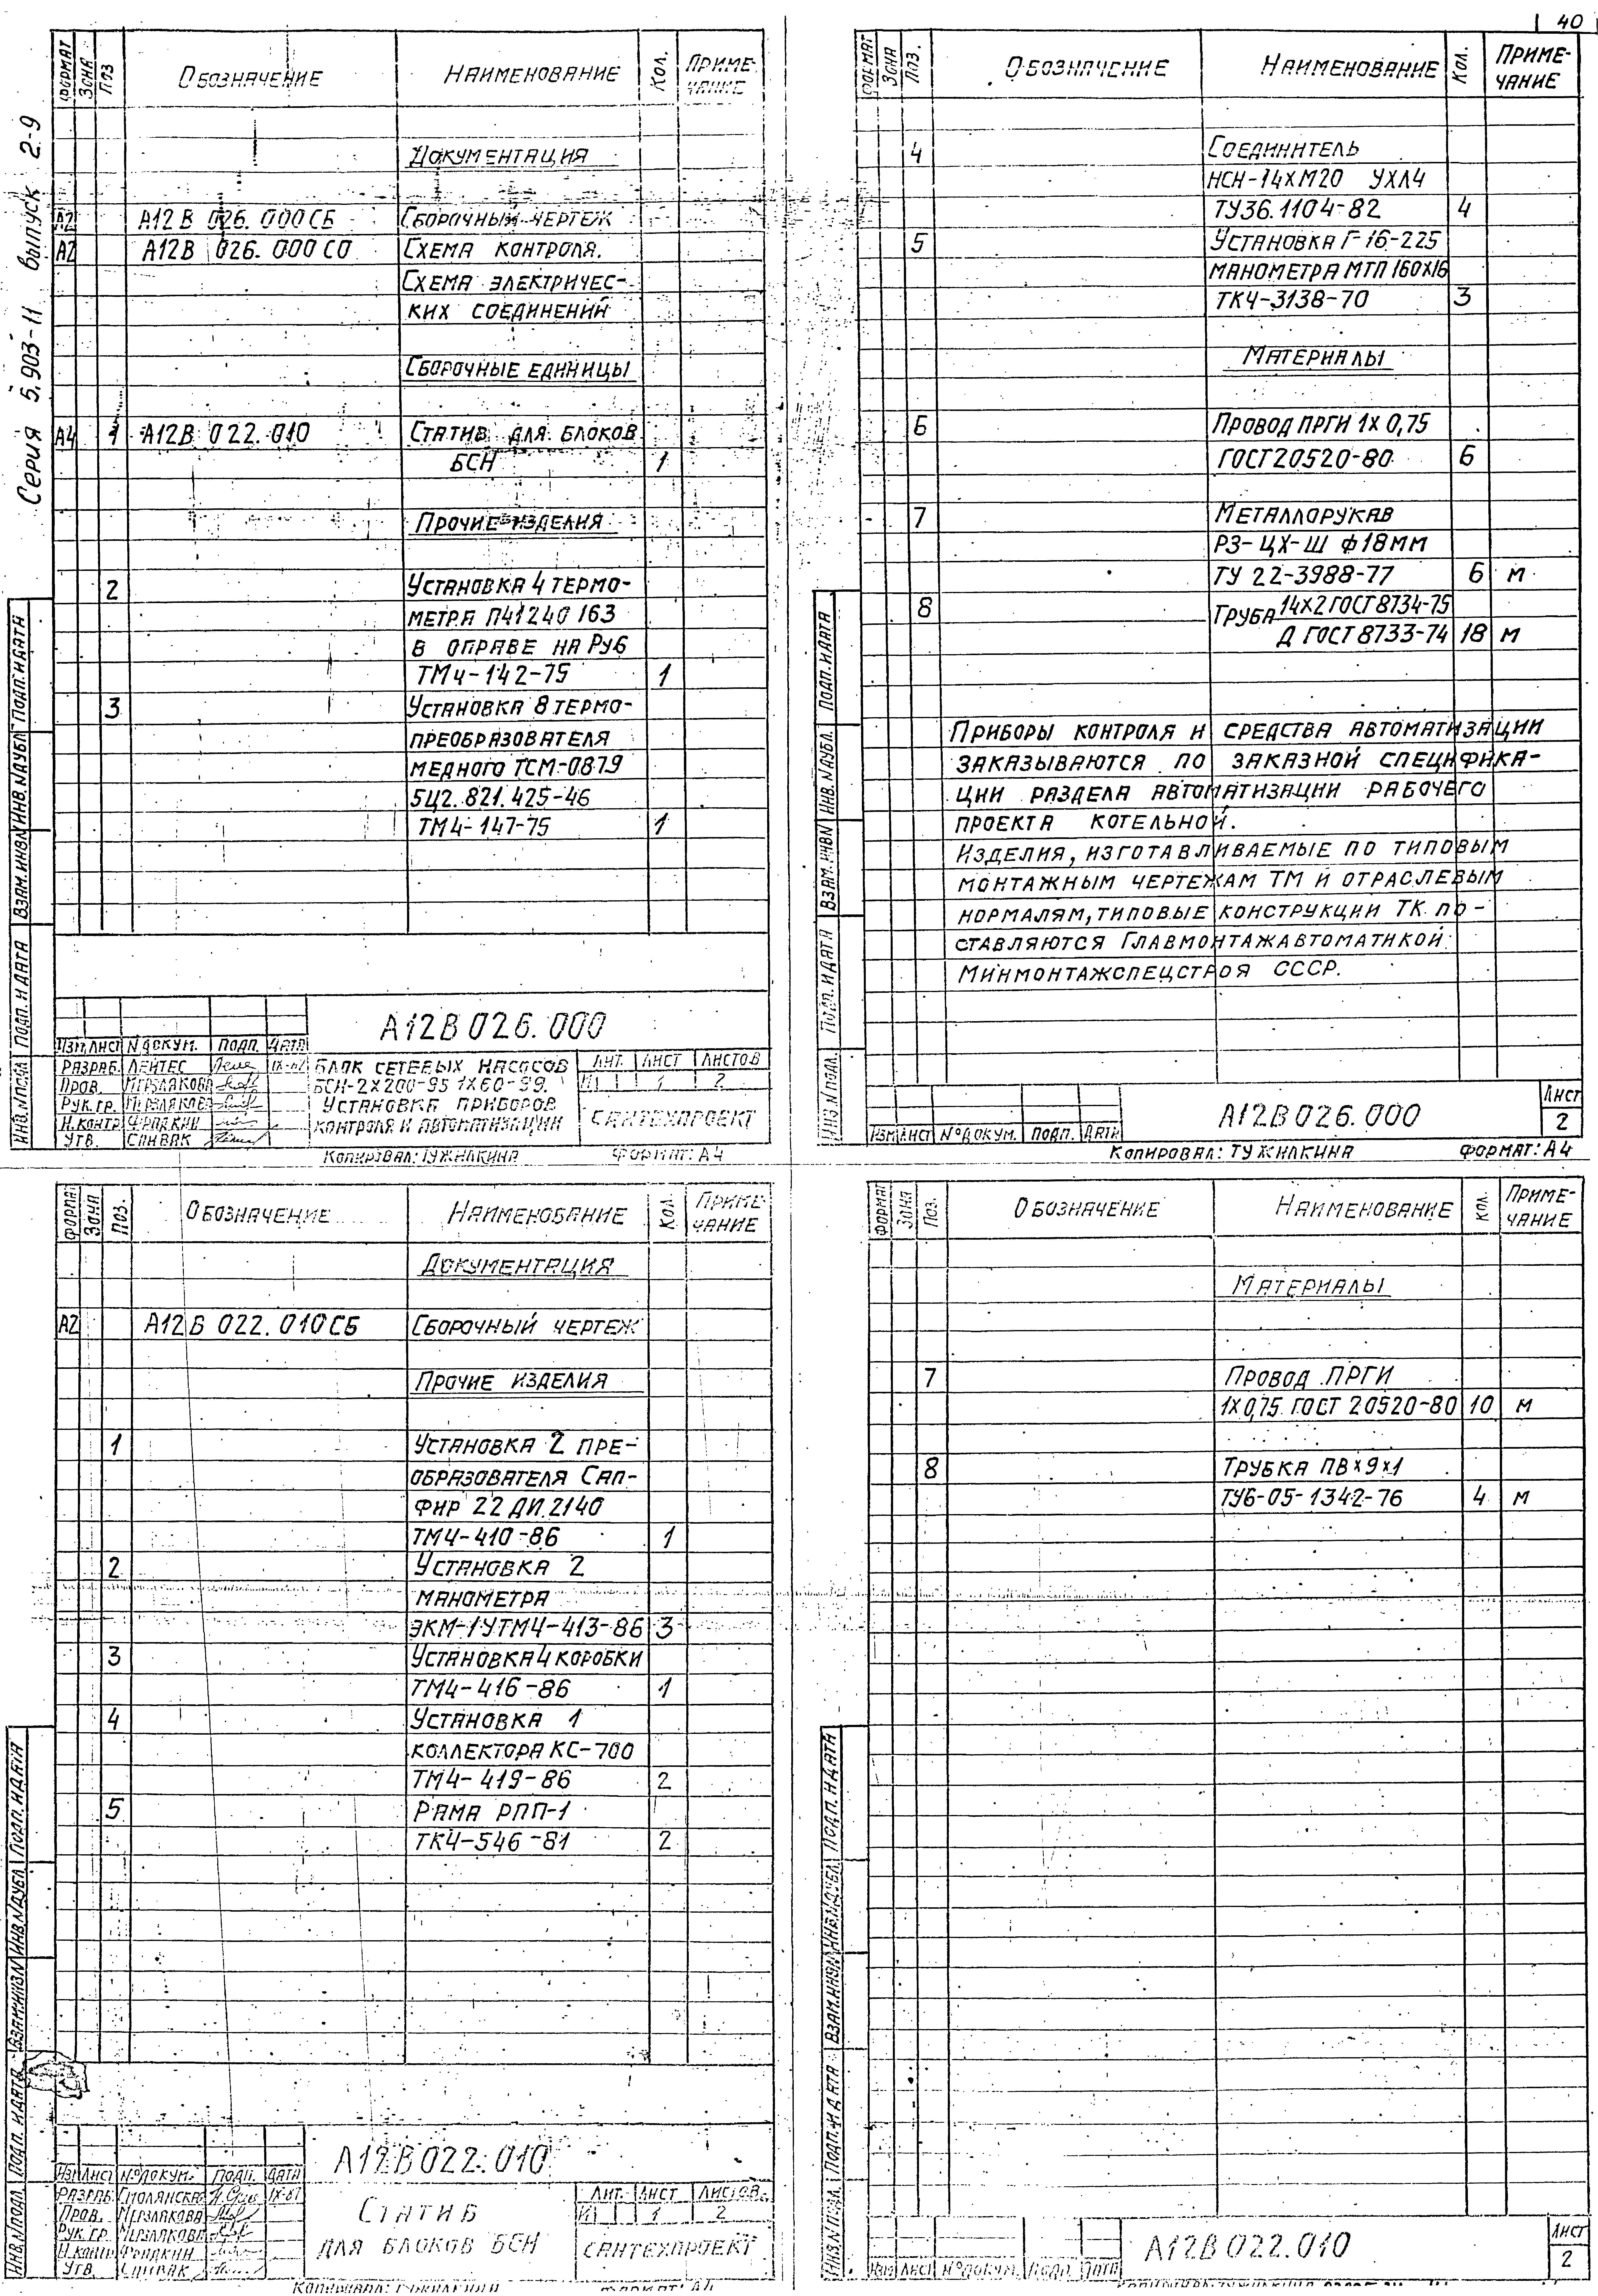 40
Серия 5.903-11 Выпуск 2-9
ФОРМАТ ЗОНА ПОЗ ОБОЗНАЧЕНИЕ НАИМЕНОВАНИЕ КОЛ. ПРИМЕ-
ЧАНИЕ
ДОКУМЕНТАЦИЯ
А2 А12В 026.000СБ СБОРОЧНЫЙ ЧЕРТЕЖ
А2 А12В 026.000СО СХЕМА КОНТРОЛЯ.
СХЕМА ЭЛЕКТРИЧЕС-
КИХ СОЕДИНЕНИЙ
СБОРОЧНЫЕ ЕДИНИЦЫ
А4 1 А12В 022.010 СТАТИВ ДЛЯ БЛОКОВ
БСН 1
ПРОЧИЕ ИЗДЕЛИЯ
2 УСТАНОВКА 4 ТЕРМО-
МЕТРА П41240 163
В ОПРАВЕ НА РУ6
ТМ4-142-75 1
3 УСТАНОВКА 8 ТЕРМО-
ПРЕОБРАЗОВАТЕЛЯ
МЕДНОГО ТСМ-0879
5Ц2.821.425-46
ТМ4-147-75 1
ИНВ.N ПОДЛ ПОДП. И ДАТА ВЗАМ.ИНВN ИНВ.NДУБЛ ПОДП.И ДАТА
А12В026.000
ИЗМ ЛИСТ N ДОКУМ. ПОДП. ДАТА
РАЗРАБ. ЛЕЙТЕС
ПРОВ. МЕРЗЛЯКОВА
РУК.ГР. МЕРЗЛЯКОВА
Н.КОНТР ФРИДКИН
УТВ. СПИВАК
БЛОК СЕТЕВЫХ НАСОСОВ
БСН-2Х200-95 1Х60-99.
УСТАНОВКА ПРИБОРОВ
КОНТРОЛЯ И АВТОМАТИЗАЦИИ
ЛИТ. ЛИСТ ЛИСТОВ
И 1 2
САНТЕХПРОЕКТ
КОПИРОВАЛ: ТУЖИЛКИНА ФОРМАТ: А4
ФОРМАТ ЗОНА ПОЗ. ОБОЗНАЧЕНИЕ НАИМЕНОВАНИЕ КОЛ. ПРИМЕ-
ЧАНИЕ
4 СОЕДИНИТЕЛЬ
НСН-14ХМ20 УХЛ4
ТУ36.1104-82 4
5 УСТАНОВКА Г-16-225
МАНОМЕТРА МТП 160Х16
ТК4-3138-70 3
МАТЕРИАЛЫ
6 ПРОВОД ПРГИ 1Х0,75
ГОСТ20520-80 6
7 МЕТАЛЛОРУКАВ
РЗ-ЦХ-Ш Ф18ММ
ТУ 22-3988-77 6 М
8 ТРУБА 14Х2 ГОСТ 8734-75
Д ГОСТ 8733-74 18 М
ПРИБОРЫ КОНТРОЛЯ И СРЕДСТВА АВТОМАТИЗАЦИИ
ЗАКАЗЫВАЮТСЯ ПО ЗАКАЗНОЙ СПЕЦИФИКА-
ЦИИ РАЗДЕЛА АВТОМАТИЗАЦИИ РАБОЧЕГО
ПРОЕКТА КОТЕЛЬНОЙ.
ИЗДЕЛИЯ, ИЗГОТАВЛИВАЕМЫЕ ПО ТИПОВЫМ
МОНТАЖНЫМ ЧЕРТЕЖАМ ТМ И ОТРАСЛЕВЫМ
НОРМАЛЯМ, ТИПОВЫЕ КОНСТРУКЦИИ ТК ПО-
СТАВЛЯЮТСЯ ГЛАВМОНТАЖАВТОМАТИКОЙ
МИНМОНТАЖСПЕЦСТРОЯ СССР.
ИНВ.N ПОДЛ. ПОДП. И ДАТА ВЗАМ.ИНВN ИНВ.NДУБЛ. ПОДП.И ДАТА
ИЗМ ЛИСТ N°ДОКУМ. ПОДП. ДАТА
А12В026.000
ЛИСТ
2
КОПИРОВАЛ: ТУЖИЛКИНА ФОРМАТ: А4
ФОРМАТ ЗОНА ПОЗ. ОБОЗНАЧЕНИЕ НАИМЕНОВАНИЕ КОЛ. ПРИМЕ-
ЧАНИЕ
ДОКУМЕНТАЦИЯ
А2 А12В 022.010СБ СБОРОЧНЫЙ ЧЕРТЕЖ
ПРОЧИЕ ИЗДЕЛИЯ
1 УСТАНОВКА 2 ПРЕ-
ОБРАЗОВАТЕЛЯ САП-
ФИР 22 ДИ 2140
ТМ4-410-86 1
2 УСТАНОВКА 2
МАНОМЕТРА
ЭКМ-1УТМ4-413-86 3
3 УСТАНОВКА 4 КОРОБКИ
ТМ4-416-86 1
4 УСТАНОВКА 1
КОЛЛЕКТОРА КС-700
ТМ4-419-86 2
5 РАМА РПП-1
ТК4-546-81 2
ИНВ.N ПОДЛ. ПОДП. И ДАТА ВЗАМ.ИНВN ИНВ.NДУБЛ ПОДП. И ДАТА
А12В022.010
ИЗМ ЛИСТ N°ДОКУМ. ПОДП. ДАТА
РАЗРАБ. СМОЛЯНСКАЯ IX-87
ПРОВ. МЕРЗЛЯКОВА
РУК.ГР. МЕРЗЛЯКОВА
Н.КОНТР ФРИДКИН
УТВ. СПИВАК
СТАТИВ
ДЛЯ БЛОКОВ БСН
ЛИТ. ЛИСТ ЛИСТОВ
И 1 2
САНТЕХПРОЕКТ
КОПИРОВАЛ: ТУЖИЛКИНА ФОРМАТ: А4
ФОРМАТ ЗОНА ПОЗ. ОБОЗНАЧЕНИЕ НАИМЕНОВАНИЕ КОЛ. ПРИМЕ-
ЧАНИЕ
МАТЕРИАЛЫ
7 ПРОВОД ПРГИ
1Х0,75 ГОСТ 20520-80 10 М
8 ТРУБКА ПВХ9Х1
ТУ6-05-1342-76 4 М
ИНВ.N ПОДЛ. ПОДП. И ДАТА ВЗАМ.ИНВN ИНВ.NДУБЛ ПОДП. И ДАТА
ИЗМ ЛИСТ N°ДОКУМ. ПОДП. ДАТА
А12В022.010
ЛИСТ
2